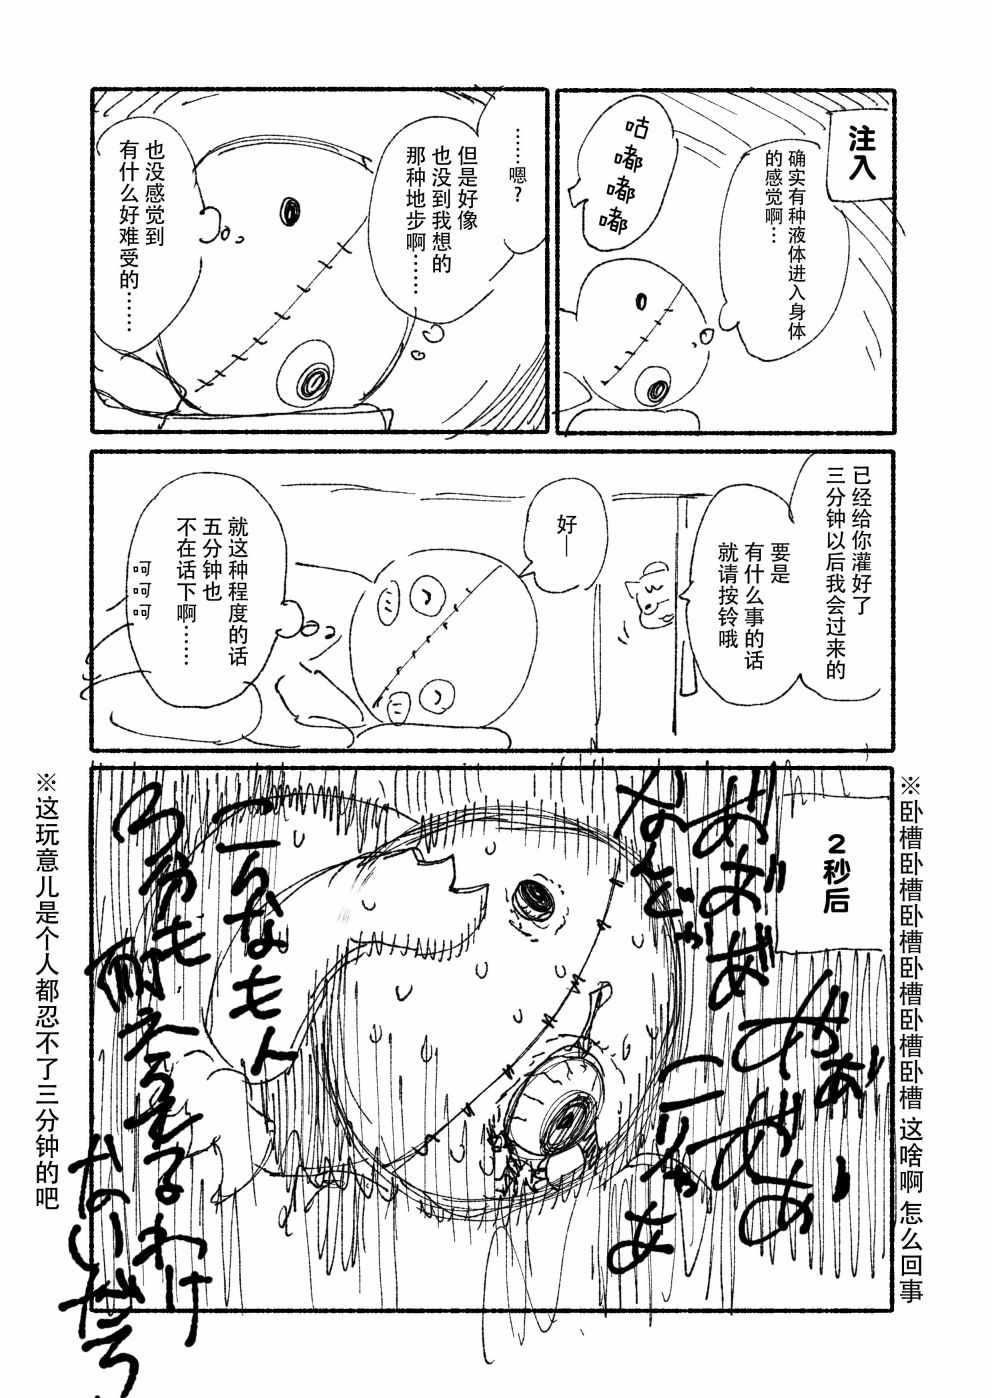 注入
确实有种液体进入身体
的感觉啊…
咕
嘟
嘟
嘟
……嗯?
但是好像
也没到我想的
那种地步啊……
也没感觉到
有什么好难受的……
已经给你灌好了
三分钟以后我会过来的
要是
有什么事的话
就请按铃哦
好—
就这种程度的话
五分钟也
不在话下啊……
呵呵呵
2秒后
※卧槽卧槽卧槽卧槽卧槽卧槽 这啥啊 怎么回事
なんだ
こんなもん
3分も
耐える
わけ
ないだろ
※这玩意儿是个人都忍不了三分钟的吧